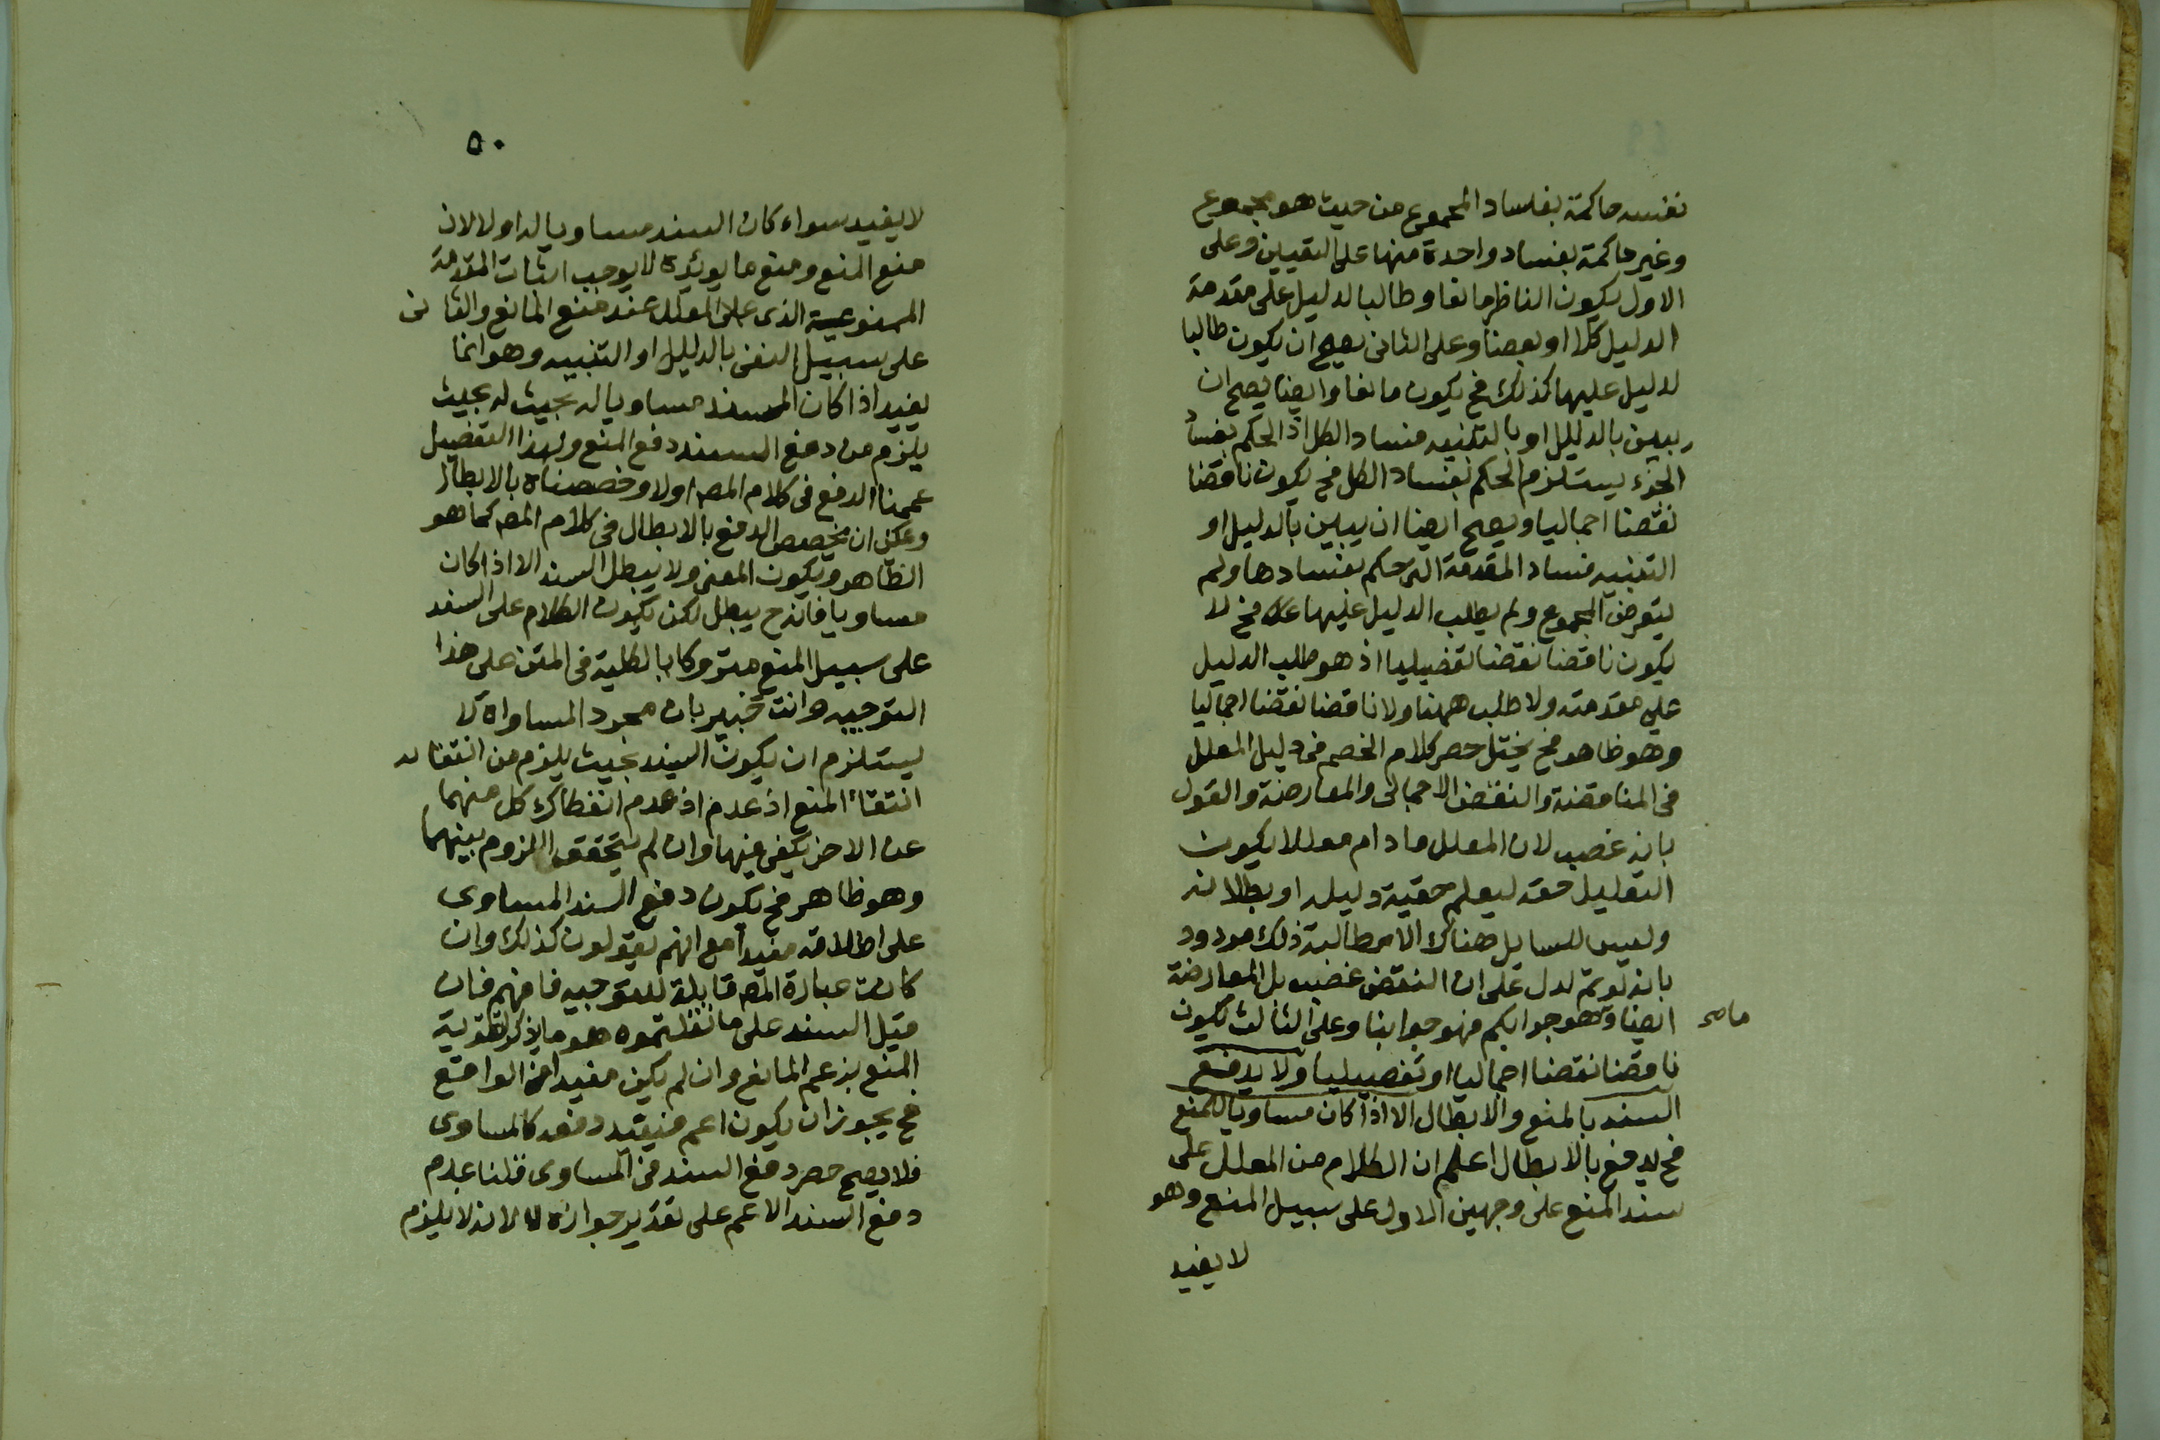 نفسه حاكمة بفساد المجموع من حيث هو مجموع
وغير حاكمة بفساد واحدة منها على التعيين وعلى
الاول يكون الناظر مانعا وطالبا لدليل على مقدمة
الدليل كلا او بعضا وعلى الثانى يصح ان يكون طالبا
لدليل عليها كذلك فح يكون مانعا وايضا يصح ان
يبين بالدليل او بالتنبيه فساد الكل اذ الحكم بفساد
الجزء يستلزم الحكم بفساد الكل فح يكون ناقضا
نقضا اجماليا ويصح ايضا ان يبين بالدليل او
التنبيه فساد المقدمة التى حكم بفسادها ولم
يتعرض المجموع ولم يطلب الدليل عليها فح لا
يكون ناقضا نقضا تفضيليا اذ هو طلب الدليل
على مقدمته ولا طلب ههنا ولا ناقضا نقضا اجماليا
وهو ظاهر فح يختل حصر كلام الخصم فى دليل المعلل
فى المناقضة والنقض الاجمالى والمعارضة والقول
بانه غصب لان المعلل ما دام معللا يكون
التعليل حقه ليعلم حقية دليله او بطلانه
وليس للسايل هناك الا مطالبة ذلك مردود
بانه لو تم لدل على ان النقض غصب بل المعارضة
ايضا وهو جوابكم فهو جوابنا وعلى الثالث يكون
ما صح
ناقضا نقضا اجماليا او تفصيليا ولا يدفع
السند بالمنع والابطال الا اذا كان مساويا للمنع
فح يدفع بالابطال اعلم ان الكلام من المعلل على
سند المنع على وجهين الاول على سبيل المنع وهو
لا يفيد
٥٠
لا يفيد سواء كان السند مساويا له اولا لان
منع المنع ومنع ما يويده لا يوجب اثبات المقدمة
الممنوعية الذى على المعلل عند منع المانع والثانى
على سبيل النفى بالدليل او التنبيه وهو انما
يفيد اذا كان السند مساويا له بحيث له بحيث
يلزم من دفع السند دفع المنع ولهذا التفضيل
عممنا الدفع فى كلام المص اولا وخصصناه بالابطال
ويمكن ان يخصص الدفع بالابطال فى كلام المص كما هو
الظاهر ويكون المعنى ولا يبطل السند الا اذا كان
مساويا فانه ح يبطل لكن يكون الكلام على السند
على سبيل المنع متروكا بالكلية فى المتن على هذا
التوجيه وانت خبير بان مجرد المساواة لا
يستلزم ان يكون السند بحيث يلزم من انتفائه
انتفاء المنع اذ عدم اذ عدم انفكاك كل منهما
عن الاخر يكفى فيها وان لم يتحقق اللزوم بينهما
وهو ظاهر فح يكون دفع السند المساوى
على اطلاقه مفيدا مع انهم يقولون كذلك وان
كانت عبارة المص قابلة للتوجيه فافهم فان
قيل السند على ما نقلتموه هو ما يذكر لتقوية
المنع بزعم المانع وان لم يكن مفيدا فى الواقع
فح يجوز ان يكون اعم فيفيد دفعه كالمساوى
فلا يصح حصر دفع السند فى المساوى قلنا عدم
دفع السند الاعم على تقدير جوازه لا لانه لا يلزم